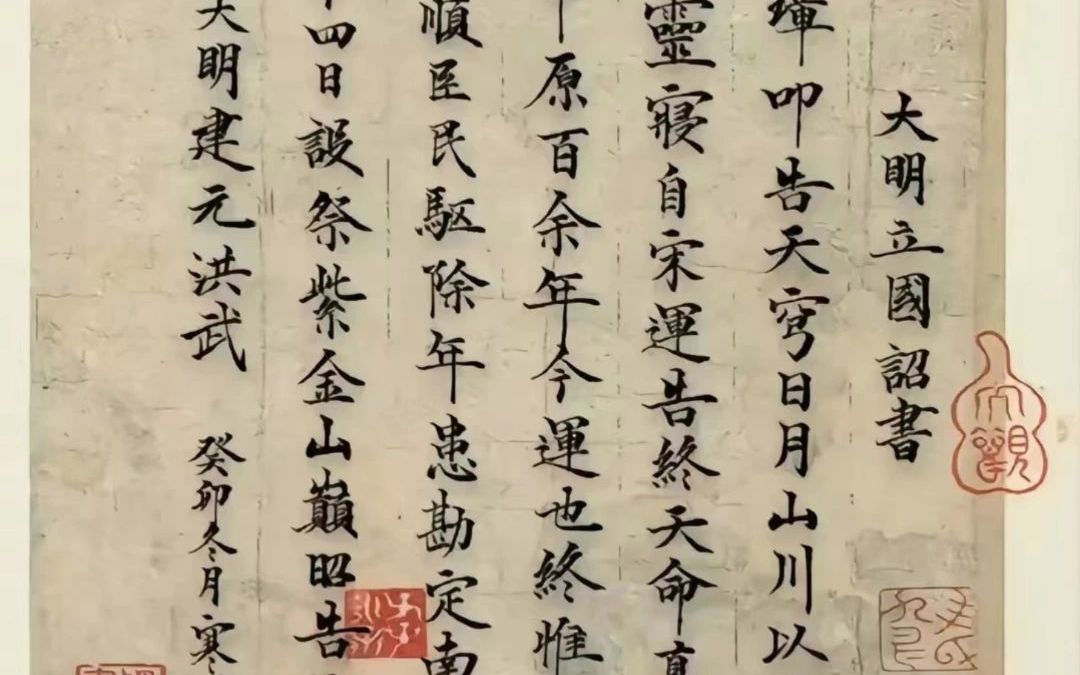 大明立國詔書
璋叩告天穹日月山川以
靈寢自宋運告終天命真
原百余年今運也終惟
順臣民駆除年患勘定南
四日設祭紫金山巔昭告
大明建元洪武 癸卯冬月寒
大觀